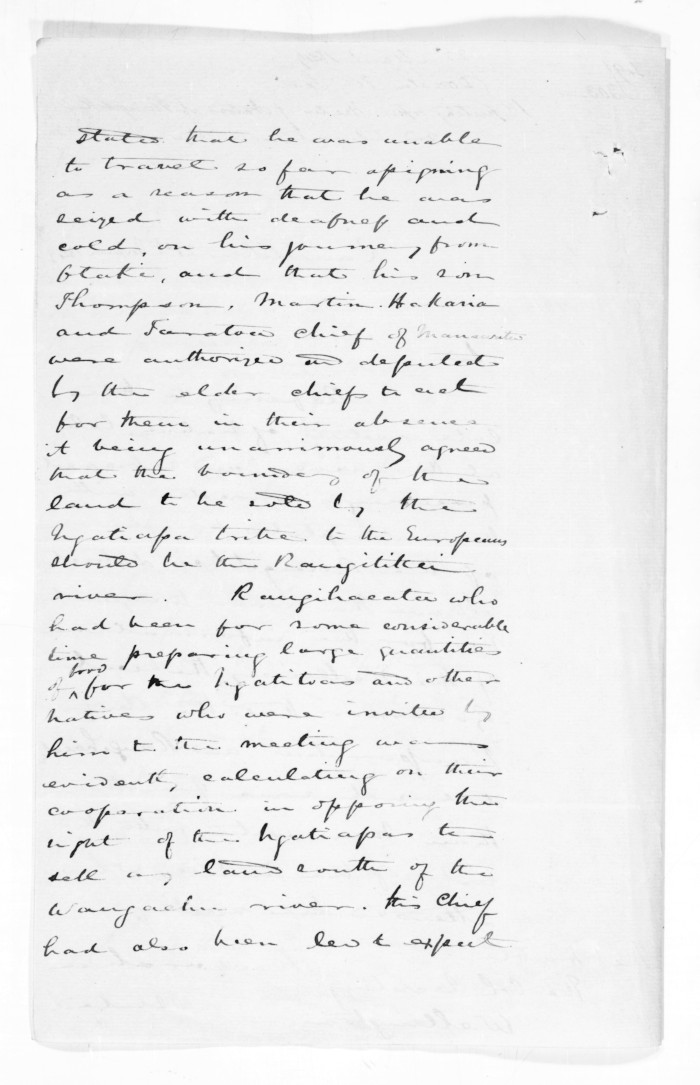 stated that he was unable
to travel so far assigning
as a reason that he was
seized with deafness and
cold, on his journey from
Otaki, and that his son
Thompson, Martin. Hakaria
and Taratoa chief of Manawatu
were authorized and deputed
by the elder chiefs to act
for them in their absence
it being unanimously agreed
that the boundary of the
land to be sold by the
Ngatiapa tribe to the Europeans
should be the Rangitikei
river. Rangihaeata who
had been for some considerable
time preparing large quantities
of food for the Ngatitoas and other
natives who were invited by
him to the meeting was
evidently calculating on their
cooperation in opposing the
right of the Ngatiapas to
sell any land south of the
Wangaehu river. This Chief
had also been led to expect